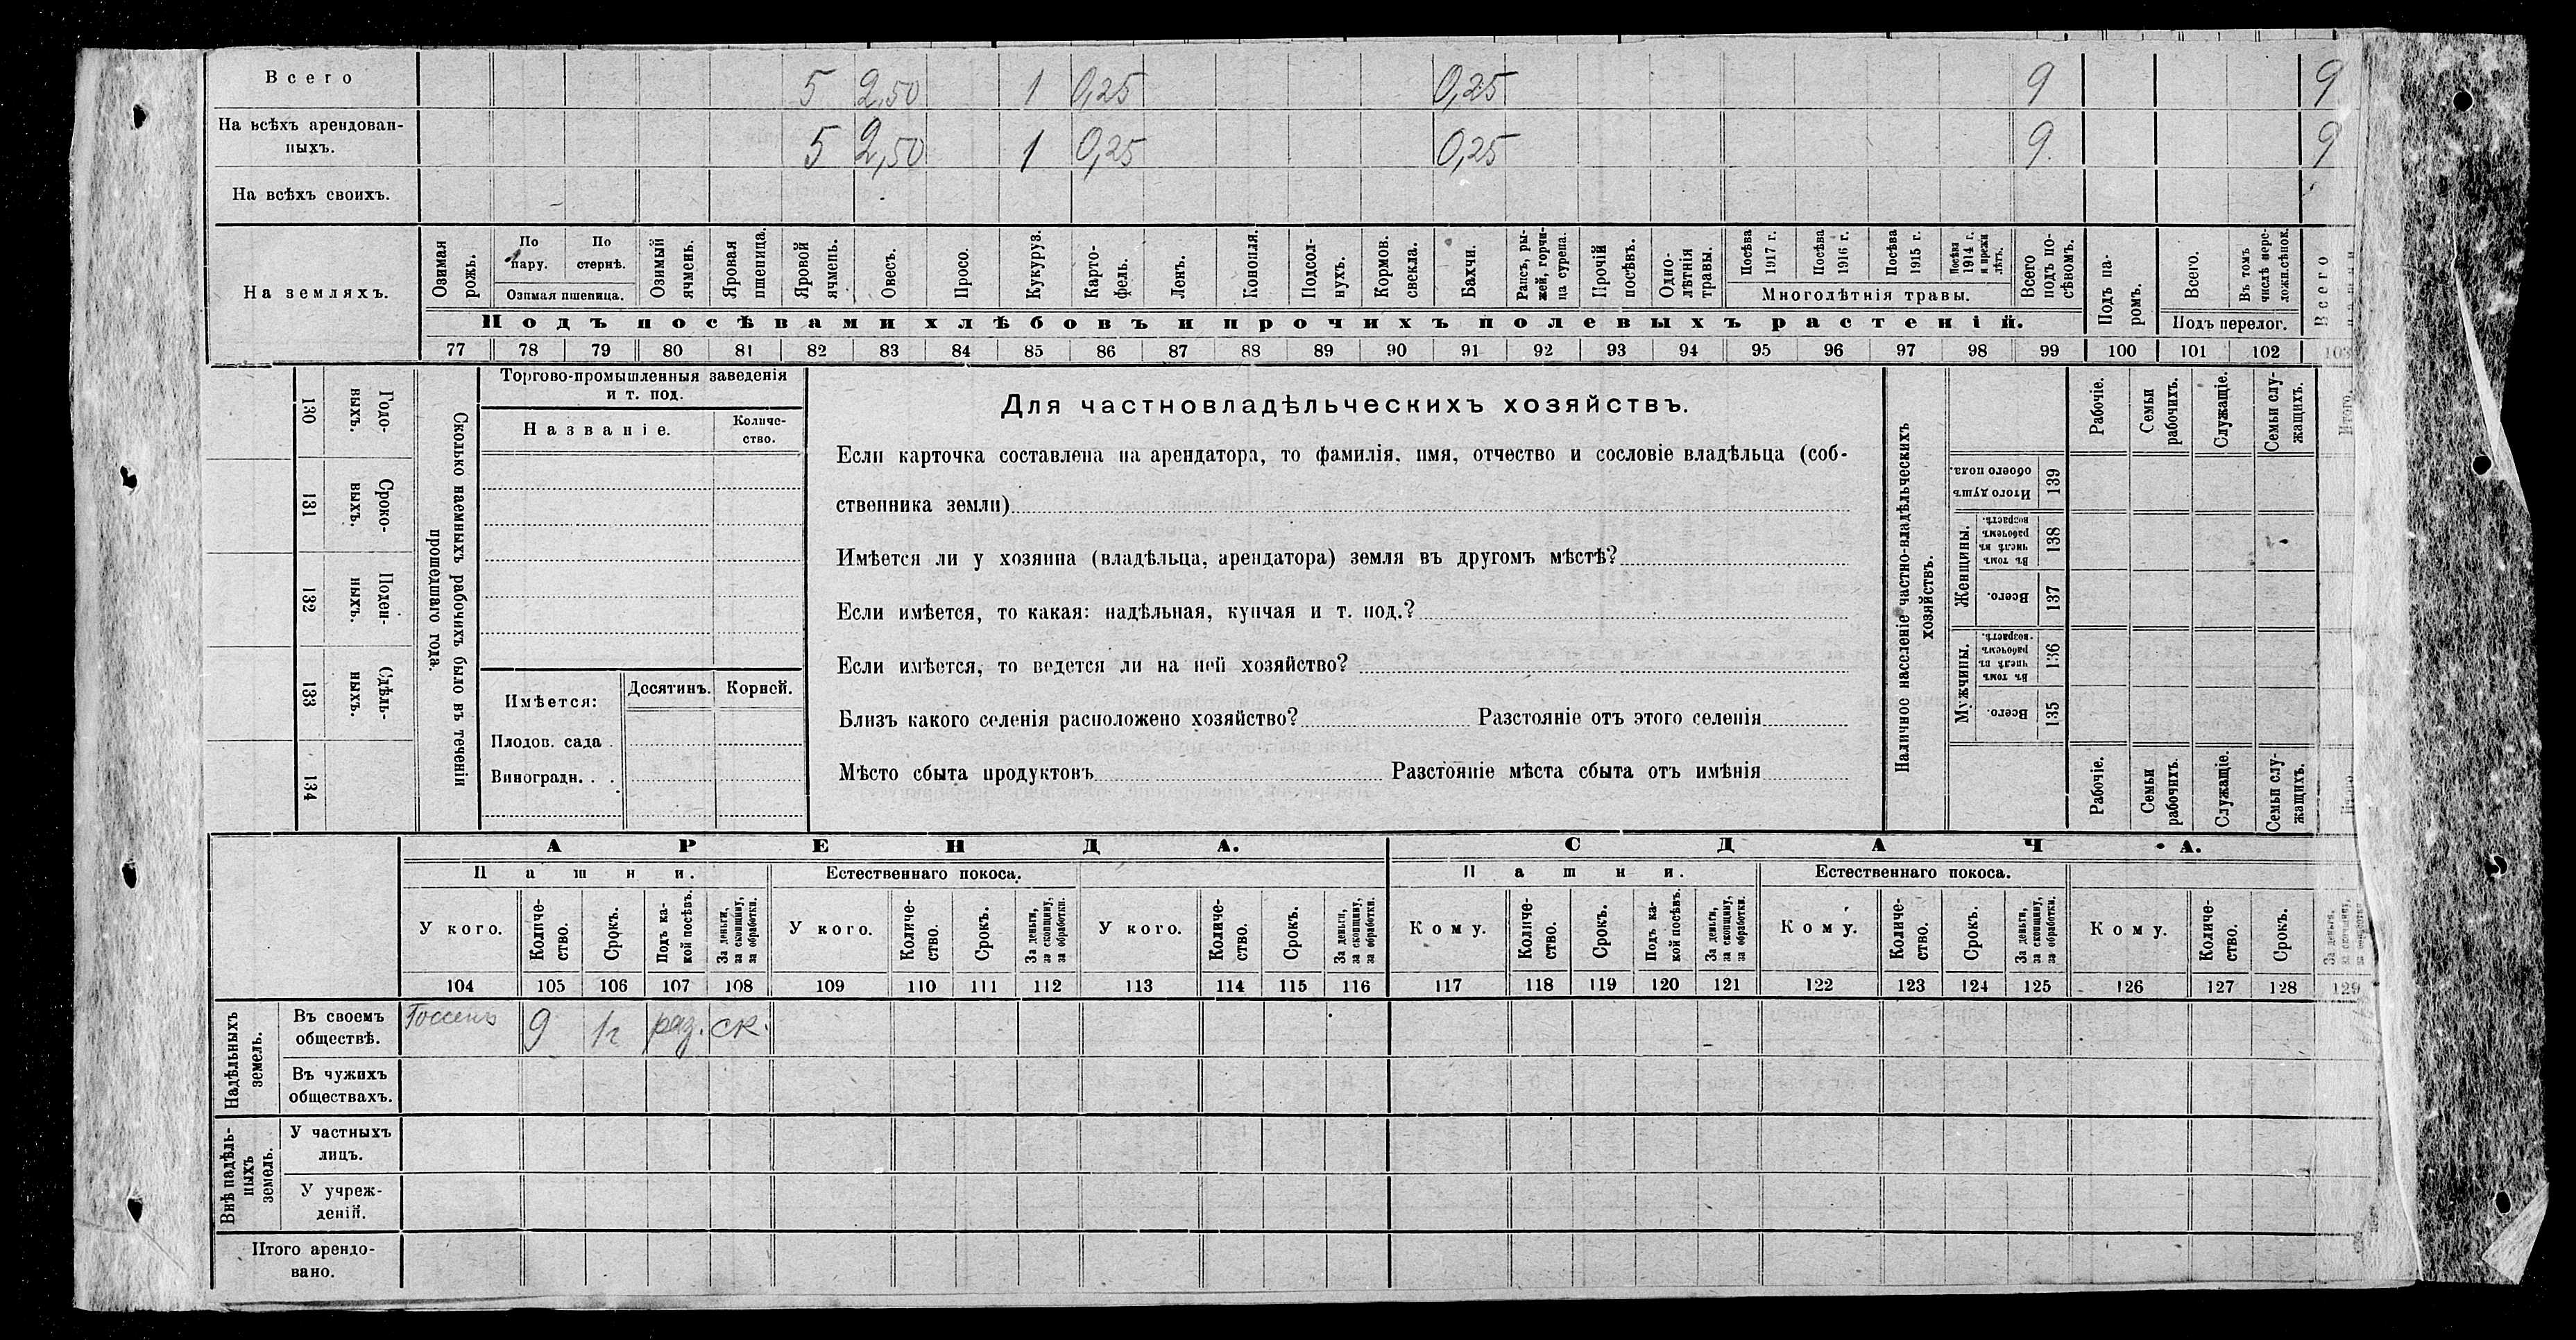 Всего 5 2,50 1 0,25 0,25 9 9
На всѣхъ арендован-
ныхъ. 5 2,50 1 0,25 0,25 9 9
На всѣхъ своихъ.
На земляхъ.
Озимая рожь.
По пару.
По стернѣ.
Озимая пшеница.
Озимый ячмень.
Яровая пшеница.
Яровой ячмень.
Овесъ.
Просо.
Кукуруз.
Карто-
фель.
Ленъ.
Конопля.
Подсол-
нухъ.
Кормов.
свекла.
Бахчи.
Рапсъ, ры-
жей, горчи-
ца сурепа.
Прочій
посѣвъ.
Одно-
лѣтнія
травы.
Посѣва
1917 г.
Посѣва
1916 г.
Посѣва
1915 г.
Посѣва
1914 г.
и прежн
лѣтъ.
Многолѣтнія травы.
Всего
подъ по-
сѣвомъ.
Подъ па-
ромъ.
Всего.
Въ томъ
числѣ перо-
ложн.сѣнок.
Подъ перелог.
Всего
Подъ посѣвами хлѣбовъ и прочихъ полевыхъ растеній.
77 78 79 80 81 82 83 84 85 86 87 88 89 90 91 92 93 94 95 96 97 98 99 100 101 102 103
130 Годо-
выхъ.
131 Сроко-
выхъ.
132 Поден-
ныхъ.
133 Сдѣль-
ныхъ.
134
Сколько наемныхъ рабочихъ было въ теченіи
прошедшаго года.
Торгово-промышленныя заведенія
и т. под.
Названіе.
Количе-
ство.
Имѣется:
Десятинъ.
Корней.
Плодов. сада .
Виноградн. . .
Для частновладѣльческихъ хозяйствъ.
Если карточка составлена на арендатора, то фамилія, имя, отчество и сословіе владѣльца (соб-
ственника земли)
Имѣется ли у хозяина (владѣльца, арендатора) земля въ другомъ мѣстѣ?
Если имѣется, то какая: надѣльная, купчая и т. под.?
Если имѣется, то ведется ли на ней хозяйство?
Близъ какого селенія расположено хозяйство? Разстояніе отъ этого селенія
Мѣсто сбыта продуктовъ Разстояніе мѣста сбыта отъ имѣнія
Наличное населеніе частно-владѣльческихъ
хозяйствъ.
Рабочіе.
Семьи
рабочихъ.
Служащіе.
Семьи слу-
жащихъ.
Итого.
Итого душъ
обоего пола.
139
Женщины.
Въ томъ
числѣ въ
рабочемъ
возрастѣ.
138
Всего.
137
Мужчины.
Въ томъ
числѣ въ
рабочемъ
возрастѣ.
136
Всего.
135
Рабочіе.
Семьи
рабочихъ.
Служащіе.
Семьи слу-
жащихъ.
АРЕНДА.
СДАЧА.
Пашни.
Естественнаго покоса.
Пашни.
Естественнаго покоса.
У кого.
Количе-
ство.
Срокъ.
Подъ ка-
кой посѣвъ.
За деньги,
за скопщину,
за обработки.
У кого.
Количе-
ство.
Срокъ.
За деньги,
за скопщину,
за обработки.
У кого.
Количе-
ство.
Срокъ.
За деньги,
за скопщину,
за обработки.
Кому.
Количе-
ство.
Срокъ.
Подъ ка-
кой посѣвъ.
За деньги,
за скопщину,
за обработки.
Кому.
Количе-
ство.
Срокъ.
За деньги,
за скопщину,
за обработки.
Кому.
Количе-
ство.
Срокъ.
За деньги,
за скопщину,
за обработки
104 105 106 107 108 109 110 111 112 113 114 115 116 117 118 119 120 121 122 123 124 125 126 127 128 129
Надѣльныхъ
земель.
Въ своемъ
обществѣ.
Госсенъ 9 1г раз. ск.
Въ чужихъ
обществахъ.
Внѣ надѣль-
ныхъ
земель.
У частныхъ
лицъ.
У учреж-
деній.
Итого арендо-
вано.